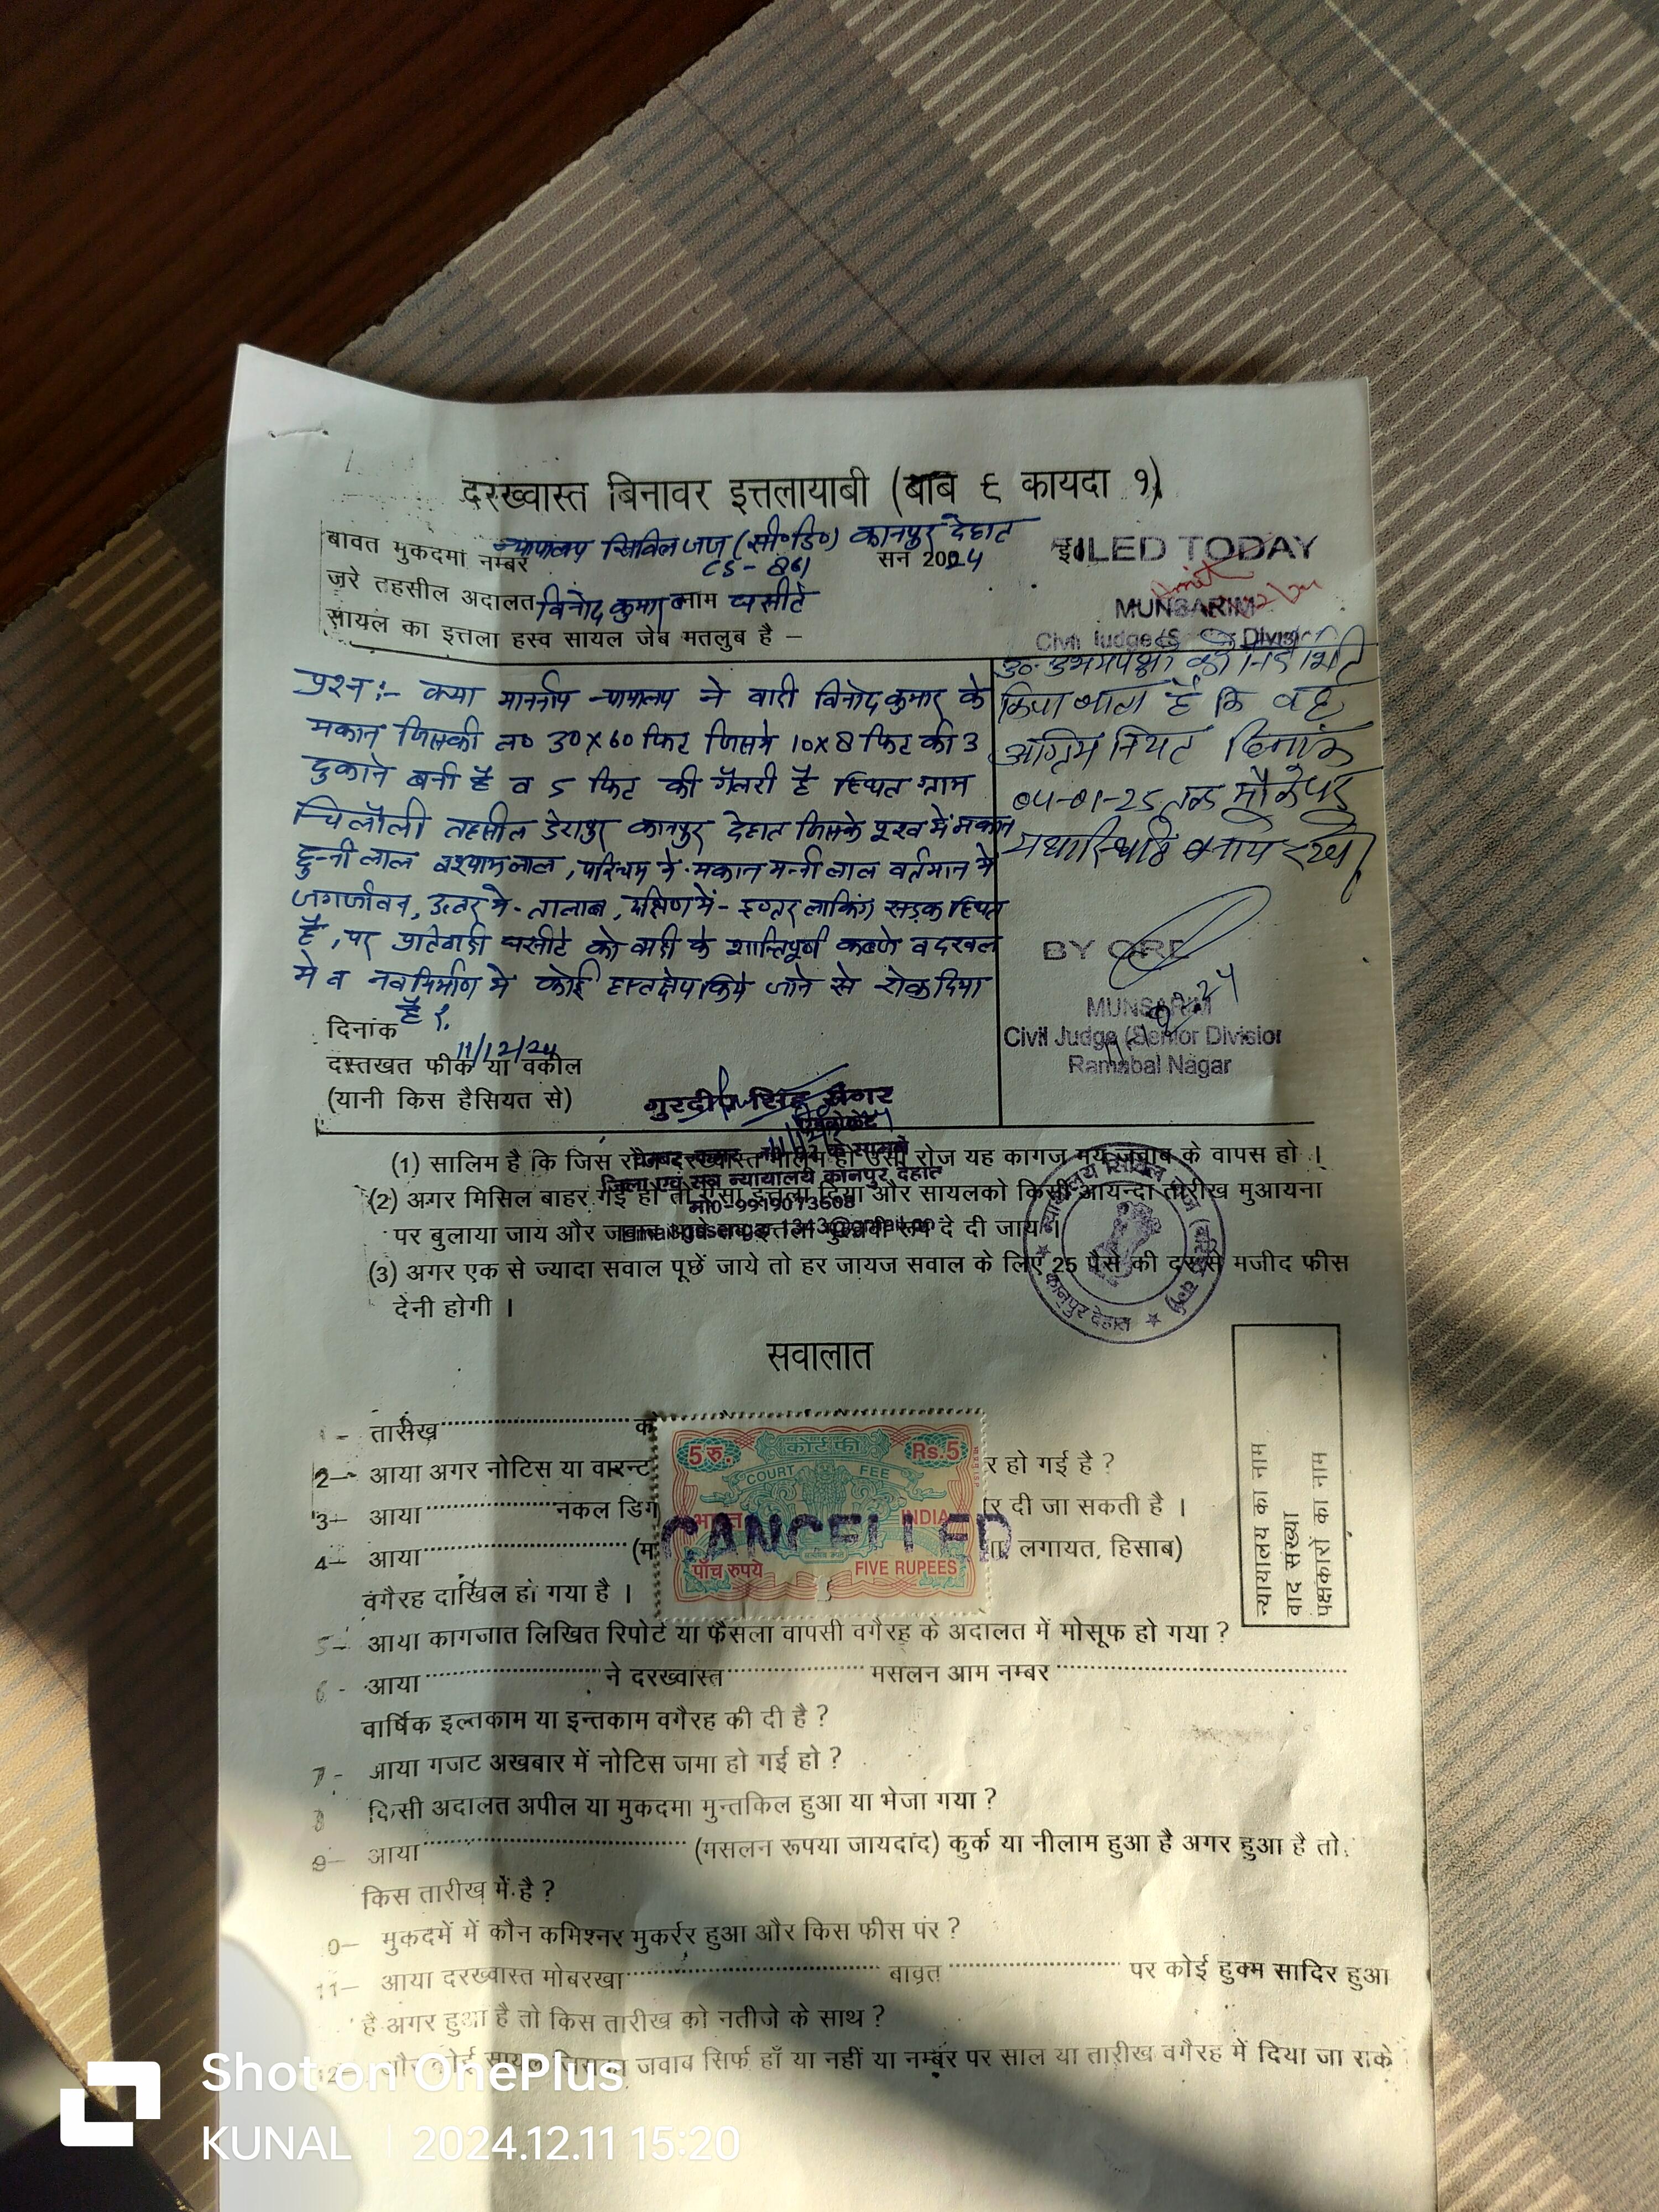 दरख्वास्त बिनावर इत्तलायाबी (बाब ६ कायदा १)
न्यायालय सिविल जज (सी०डि०) कानपुर देहात
बावत मुकदमा नम्बर CS-861 सन 2024
जरे तहसील अदालत विनोद कुमार बनाम घसीटे
सायल का इत्तला हस्व सायल जेब मतलुब है –
FILED TODAY
MUNSARIM
Civil Judge (S Divisi
प्रश्न:- क्या माननीय न्यायालय ने वादी विनोद कुमार के
मकान जिसकी ल० 30x60 फिट जिसमे 10x8 फिट की 3
दुकाने बनी है व 5 फिट की गैलरी है स्थित ग्राम
चिलौली तहसील डेरापुर कानपुर देहात जिसके पूरब में मकान
दुन्नी लाल व श्यामलाल, पश्चिम मे- मकान मन्नी लाल वर्तमान मे
जगजीवन, उत्तर मे- तालाब, दक्षिण में- इण्टर लाकिंग सड़क स्थित
है, पर प्रतिवादी घसीटे को वादी के शान्तिपूर्ण कब्जे व दखल
मे व नवनिर्माण मे कोई हस्तक्षेप किये जाने से रोक दिया
है ?
उ०- उभयपक्षो को निर्देशित
किया जाता है कि वह
अग्रिम नियत दिनांक
04-01-25 तक मौके पर
यथास्थिति बनाये रखे।
BY ORE
MUNSARIM
Civil Judge (Senior Division
Ramabai Nagar
दिनांक 11/12/24
दस्तखत फीक या वकील
(यानी किस हैसियत से)
गुरदीप सिंह सेंगर
एडवोकेट
जिला एवं सत्र न्यायालय कानपुर देहात
मो0-9919073608
(1) सालिम है कि जिस रोज दरख्वास्त मालूम हो उसी रोज यह कागज मय जवाब के वापस हो ।
(2) अगर मिसिल बाहर गई हो तो एसा इत्तला दिया और सायलको किसी आयन्दा तारीख मुआयना
पर बुलाया जाय और इत्तला दे दी जाय ।
(3) अगर एक से ज्यादा सवाल पूछें जाये तो हर जायज सवाल के लिए 25 पैसे की दर से मजीद फीस
देनी होगी ।
कानपुर देहात
सवालात
1- तारीख
2- आया अगर नोटिस या वारन्ट र हो गई है ?
3- आया नकल डिग र दी जा सकती है ।
4- आया (म लगायत, हिसाब)
वगैरह दाखिल हो गया है ।
5 रु. कोर्ट फी Rs.5
COURT FEE
भारत INDIA
CANCELLED
पाँच रुपये FIVE RUPEES
न्यायालय का नाम
वाद संख्या
पक्षकारों का नाम
5- आया कागजात लिखित रिपोर्ट या फैसला वापसी वगैरह के अदालत में मोसूफ हो गया ?
6- आया ने दरख्वास्त मसलन आम नम्बर
वार्षिक इल्तकाम या इन्तकाम वगैरह की दी है ?
7- आया गजट अखबार में नोटिस जमा हो गई हो ?
8 किसी अदालत अपील या मुकदमा मुन्तकिल हुआ या भेजा गया ?
9- आया (मसलन रूपया जायदांद) कुर्क या नीलाम हुआ है अगर हुआ है तो
किस तारीख में है ?
0- मुकदमें में कौन कमिश्नर मुकर्रर हुआ और किस फीस पर ?
11- आया दरख्वास्त मोबरखा बावत पर कोई हुक्म सादिर हुआ
है अगर हुआ है तो किस तारीख को नतीजे के साथ ?
जवाब सिर्फ हाँ या नहीं या नम्बर पर साल या तारीख वगैरह में दिया जा सके
Shot on OnePlus
KUNAL | 2024.12.11 15:20